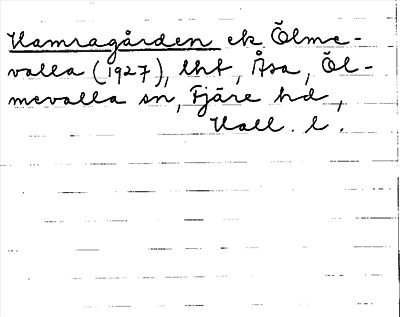 Hamragården ek. Ölme-
valla (1927), lht, Åsa, Öl-
mevalla sn, Fjäre hd,
Hall. l.